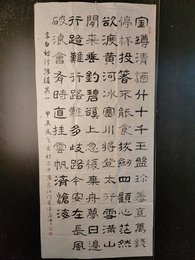 金樽清酒斗十千玉盤珍羞直萬錢
停杯投箸不能食拔劍四顧心茫然
欲渡黃河冰塞川將登太行雪滿山
閒來垂釣碧溪上忽復乘舟夢日邊
行路難行路難多歧路今安在長風
破浪會有時直挂雲帆濟滄海
李白行路難其一 甲辰